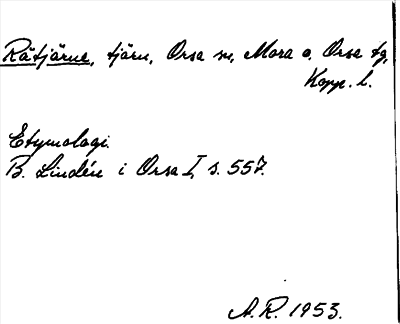 Råtjärne, tjärn, Orsa sn, Mora o. Orsa tg,
Kopp. l.
Etymologi.
B. Lindén i Orsa I, s. 557.
A.R. 1953.